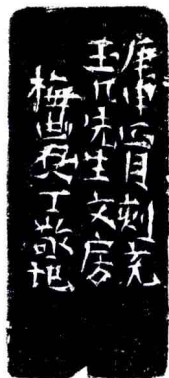 庚申正月刻充
玉几先生文房
梅農丁敬